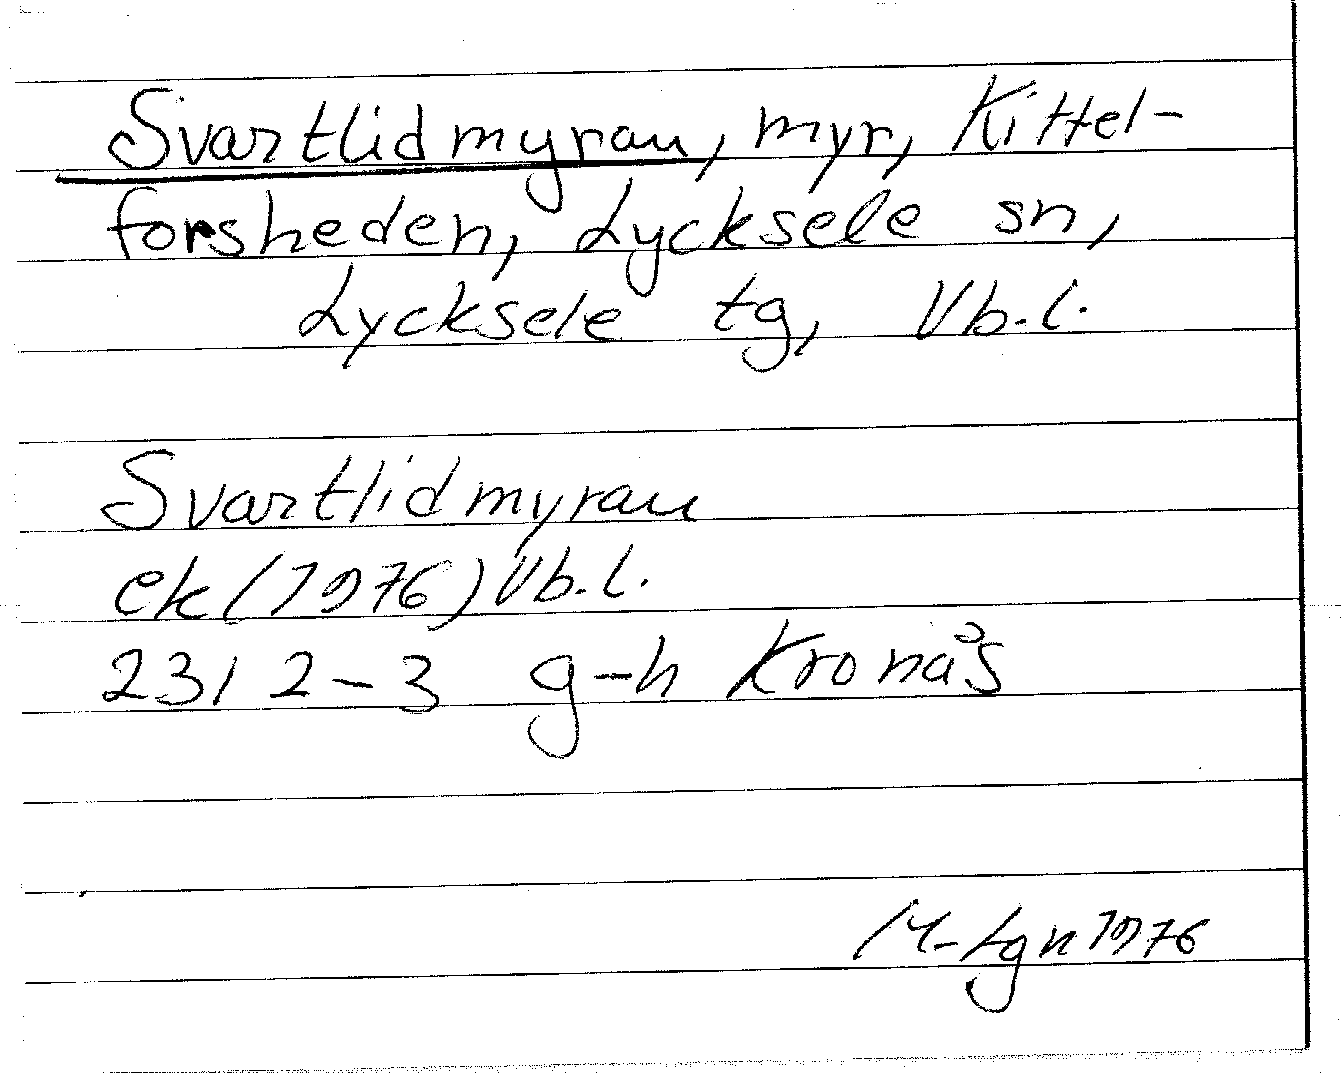 Svartlidmyran, myr, Kittel-
forsheden, Lycksele sn,
Lycksele tg, Vb.l.
Svartlidmyran
ek (1976) Vb.l.
2312-3 g-h Kronås
1976